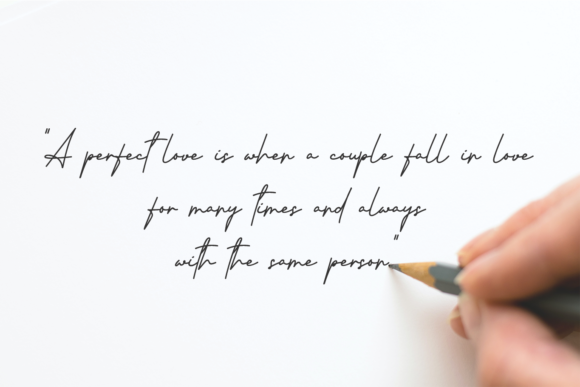 "A perfect love is when a couple fall in love
for many times and always
with the same person"